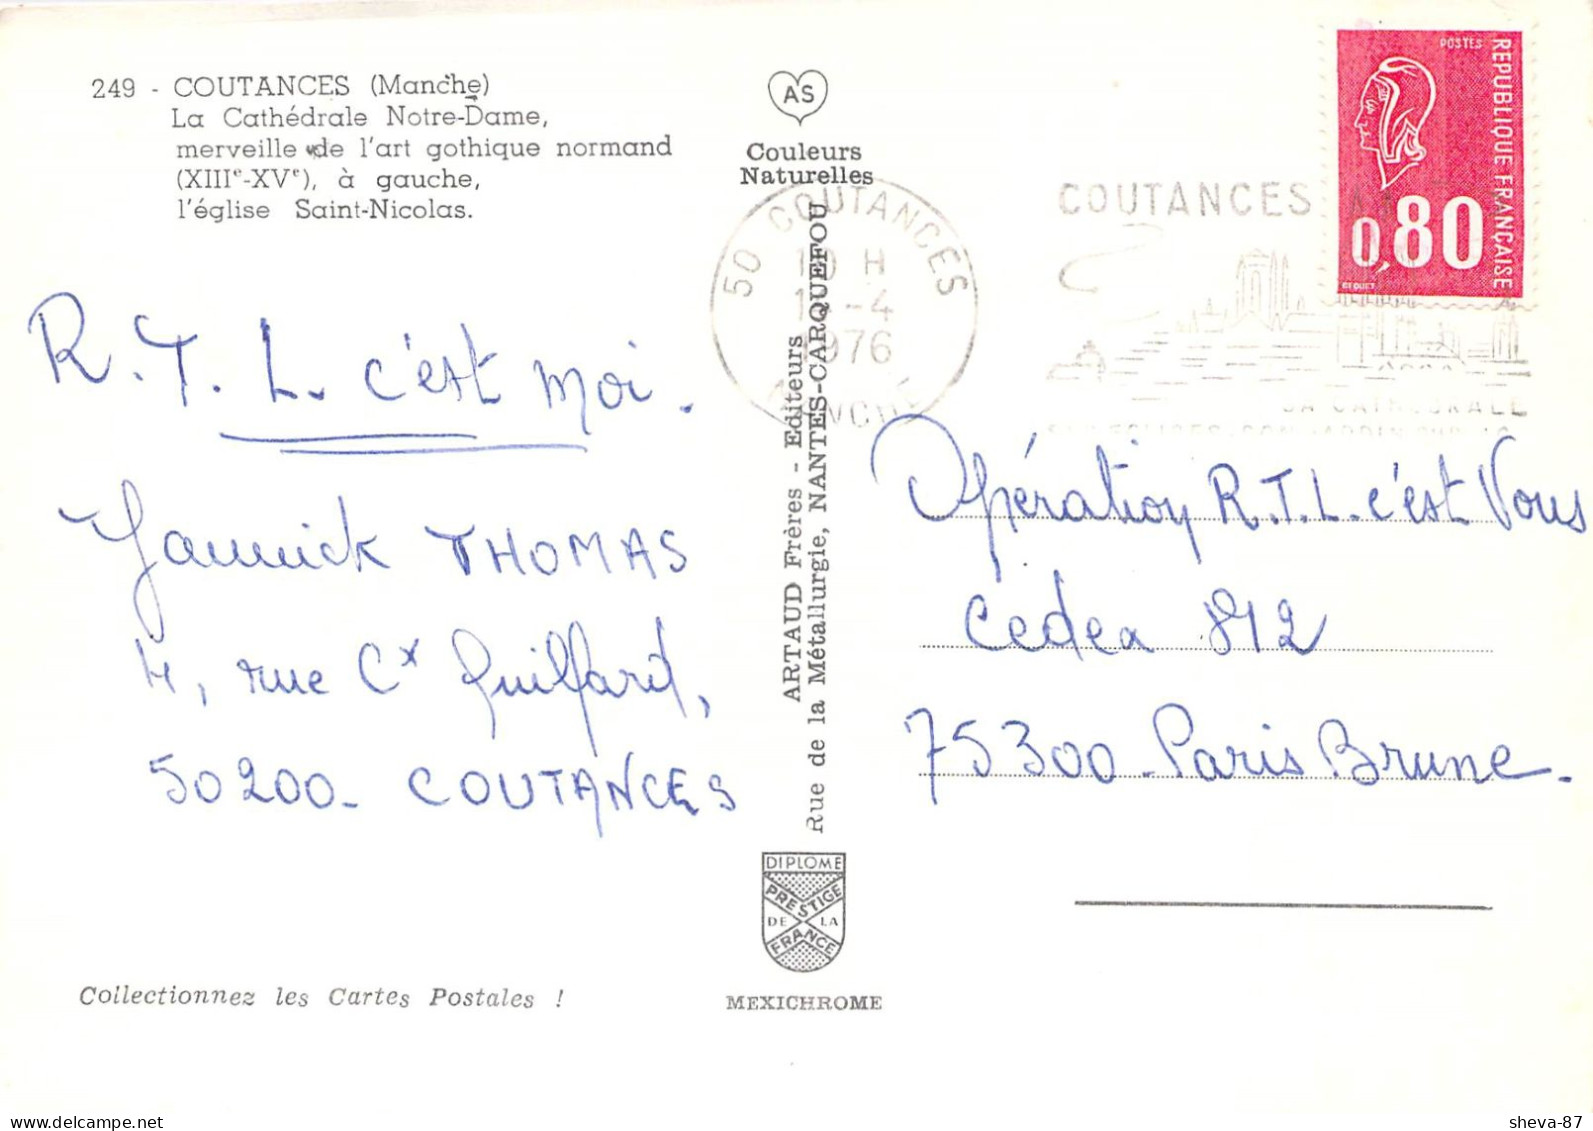 249 - COUTANCES (Manche)
La Cathédrale Notre-Dame,
merveille de l'art gothique normand
(XIIIe-XVe), à gauche,
l'église Saint-Nicolas.
R.T.L. c'est moi.
Yannick THOMAS
4, rue Cx Guillard,
50200 - COUTANCES
Collectionnez les Cartes Postales !
AS
Couleurs
Naturelles
ARTAUD Frères - Editeurs
Rue de la Métallurgie, NANTES-CARQUEFOU
DIPLOME
PRESTIGE
DE LA
FRANCE
MEXICHROME
50 COUTANCES
H
-4
1976
MANCHE
COUTANCES
SA CATHEDRALE
POSTES
REPUBLIQUE FRANÇAISE
0,80
BEQUET
Opération R.T.L. c'est Vous
Cedex 812
75300 - Paris Brune.
sheva-87